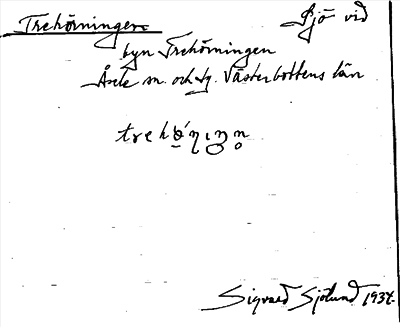 Trehörningen Sjö vid
byn Trehörningen
Åsele sn. och lg. Västerbottens län
Sigvard Sjölund 1934.